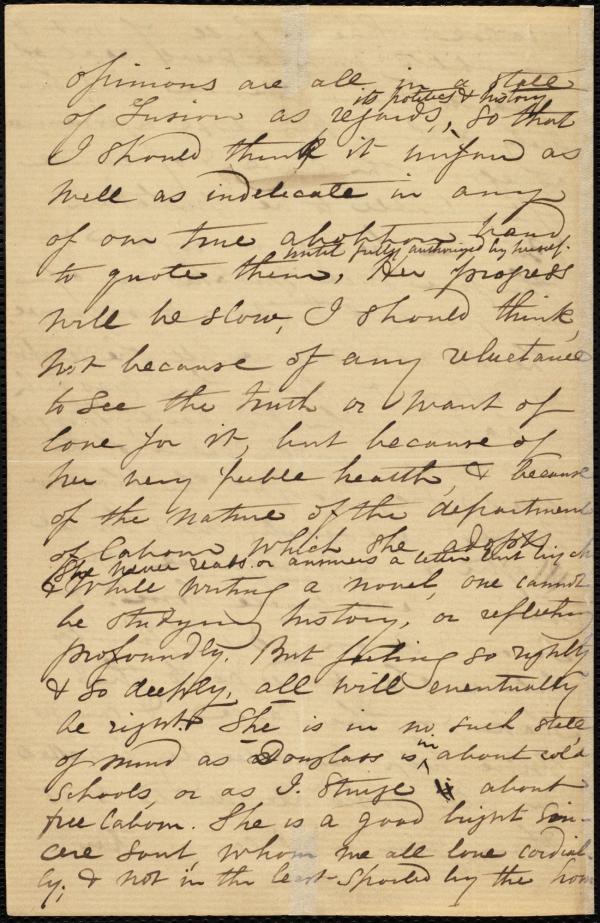 opinions are all in a state
its politics & history
of fusion as regards, so that
I should think it unfair as
well as indelicate in any
of our true abolition band
until fully authorized by herself.
to quote them. Her progress
will be slow, I should think,
not because of any reluctance
to see the truth or want of
love for it, but because of
her very feeble health, & because
of the nature of the department
of labour which she adopts.
(She never reads or answers a letter but by
While writing a novel, one cannot
be studying history, or reflecting
profoundly. But feeling so rightly
& so deeply, all will eventually
be right. She is in no such state
of mind as Douglass is in about cold
schools, or as J. Sturge about
free labour. She is a good bright sin-
cere soul, whom we all love cordial-
ly; & not in the least spoiled by the hom